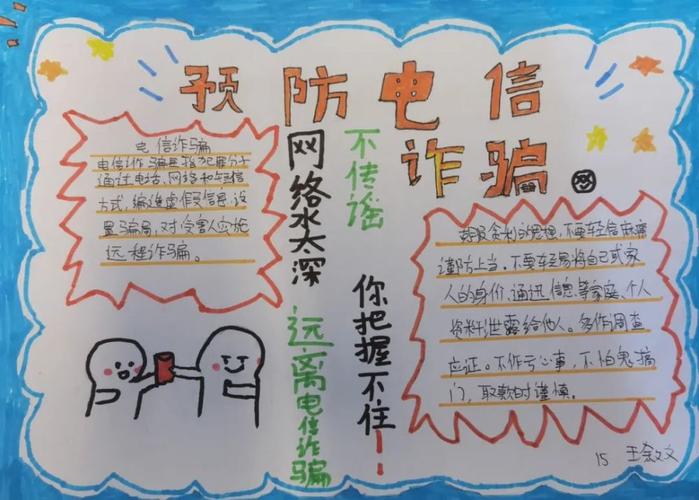 预防电信
诈骗
电信诈骗
电信诈骗是指犯罪分子
通过电话、网络和短信
方式,编造虚假信息,设
置骗局,对受害人实施
远程诈骗。
网络水太深
远离电信诈骗
不传谣
你把握不住!!
贪利的思想,不要轻信麻痹
谨防上当。不要轻易将自己或家
人的身份、通迅信息等家庭、个人
资料泄露给他人。多作调查
应证。不作亏心事,不怕鬼搞
门,取款时谨慎。
15